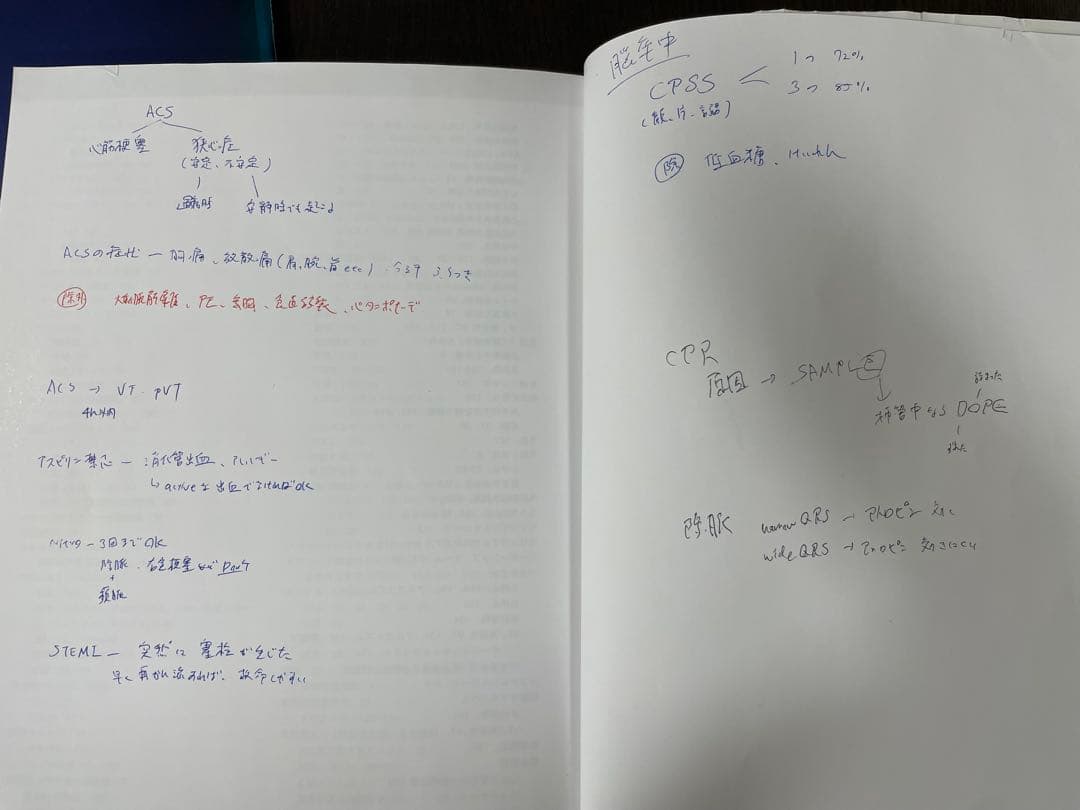 ACS
心筋梗塞 狭心症
(安定、不安定)
安静時でも起こる
ACSの症状 ー 胸痛、放散痛(肩、腕、首etc)
除外 大動脈解離、PE、気胸、食道破裂、心タンポナーデ
ACS → VT・pVT
4h以内
アスピリン禁忌 ー 消化管出血、アレルギー
↳ activeな出血でなければOK
ニトロ ー 3回までOK
除脈・右室梗塞
+
頻脈
STEMI ー 突然に 塞栓が生じた
早く再かん流すれば、救命しやすい
脳卒中
CPSS < 1つ 72%
3つ 85%
(顔、片、言語)
除 低血糖、
CPR
原因 → SAMPLE
↓
挿管中なら DOPE
除脈 narrow QRS → アトロピン 効く
wide QRS → アトロピン 効きにくい